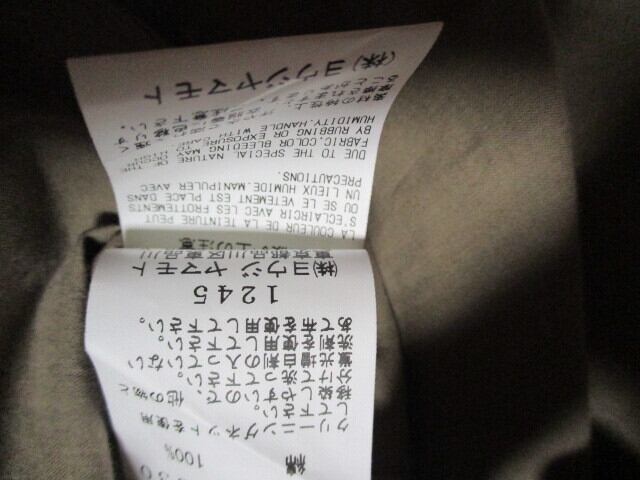 綿 100%
クリーニングネットを使用
して下さい。
移染しやすいので、他の物と
分けて洗って下さい。
蛍光増白剤の入っていない
洗剤を使用して下さい。
あて布を使用して下さい。
1245
(株)ヨウジヤマモト
東京都品川区東品川
取扱い上の注意
LA COULEUR DE LA TEINTURE PEUT
S'ECLAIRCIR AVEC LES FROTTEMENTS
OU SI LE VETEMENT EST PLACE DANS
UN LIEUX HUMIDE.MANIPULER AVEC
PRECAUTIONS.
DUE TO THE SPECIAL NATURE OF THE
FABRIC,COLOR BLEEDING MAY
BY RUBBING OR EXPOSURE
HUMIDITY.HANDLE WITH
素材の特性上、
(株)ヨウジヤマモト